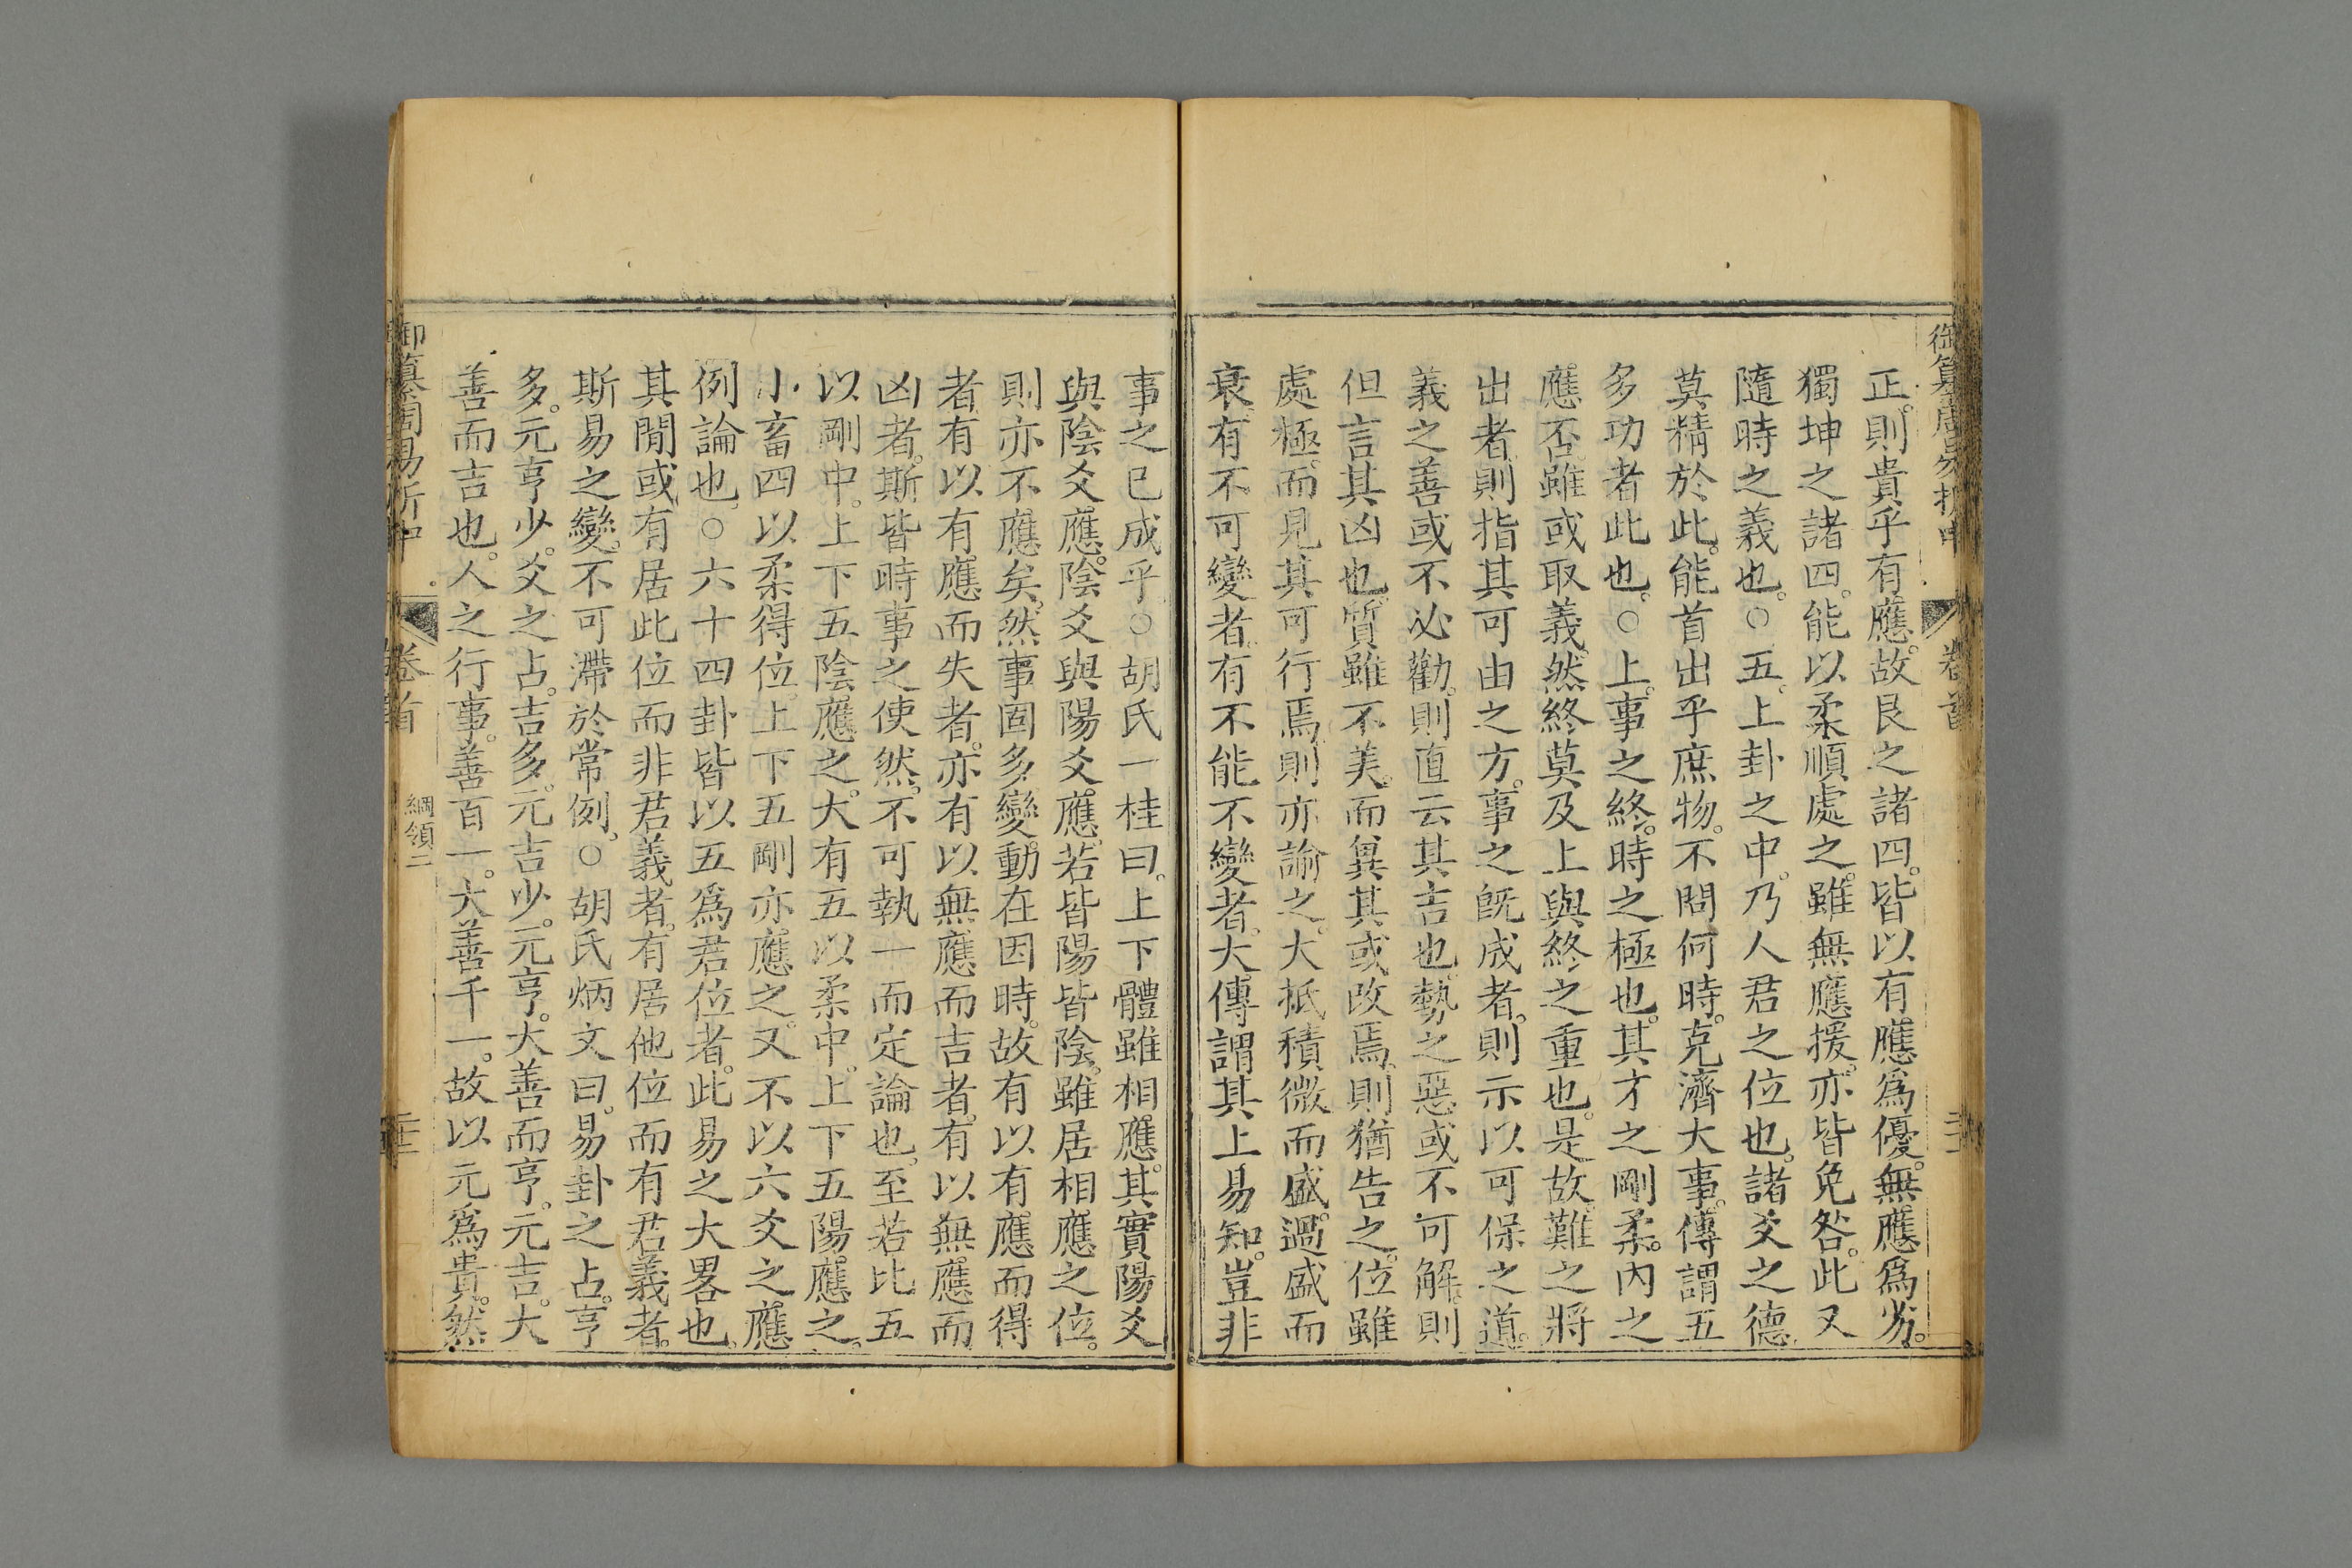 正。則貴乎有應。故艮之諸四。皆以有應爲優。無應爲劣。
獨坤之諸四。能以柔順處之。雖無應援。亦皆免咎。此又
隨時之義也。○五。上卦之中。乃人君之位也。諸爻之德。
莫精於此。能首出乎庶物。不問何時。克濟大事。傳謂五
多功者此也。○上。事之終。時之極也。其才之剛柔。内之
應否。雖或取義。然終莫及上與終之重也。是故難之將
出者。則指其可由之方。事之旣成者。則示以可保之道。
義之善或不必勸。則直云其吉也。勢之惡或不可解。則
但言其凶也。質雖不美。而異其或改焉。則猶告之。位雖
處極。而見其可行焉。則亦諭之。大抵積微而盛。過盛而
衰。有不可變者。有不能不變者。大傳謂其上易知。豈非
事之已成乎。○胡氏一桂曰。上下體雖相應。其實陽爻
與陰爻應。陰爻與陽爻應。若皆陽皆陰。雖居相應之位。
則亦不應矣。然事固多變。動在因時。故有以有應而得
者。有以有應而失者。亦有以無應而吉者。有以無應而
凶者。斯皆時事之使然。不可執一而定論也。至若比五
以剛中。上下五陰應之。大有五以柔中。上下五陽應之。
小畜四以柔得位。上下五剛亦應之。又不以六爻之應
例論也。○六十四卦皆以五爲君位者。此易之大畧也。
其閒或有居此位而非君義者。有居他位而有君義者。
斯易之變。不可滯於常例。○胡氏炳文曰。易卦之占。亨
多。元亨少。爻之占。吉多。元吉少。元亨。大善而亨。元吉。大
善而吉也。人之行事。善百一。大善千一。故以元爲貴。然
御纂周易折中
卷首
綱領二